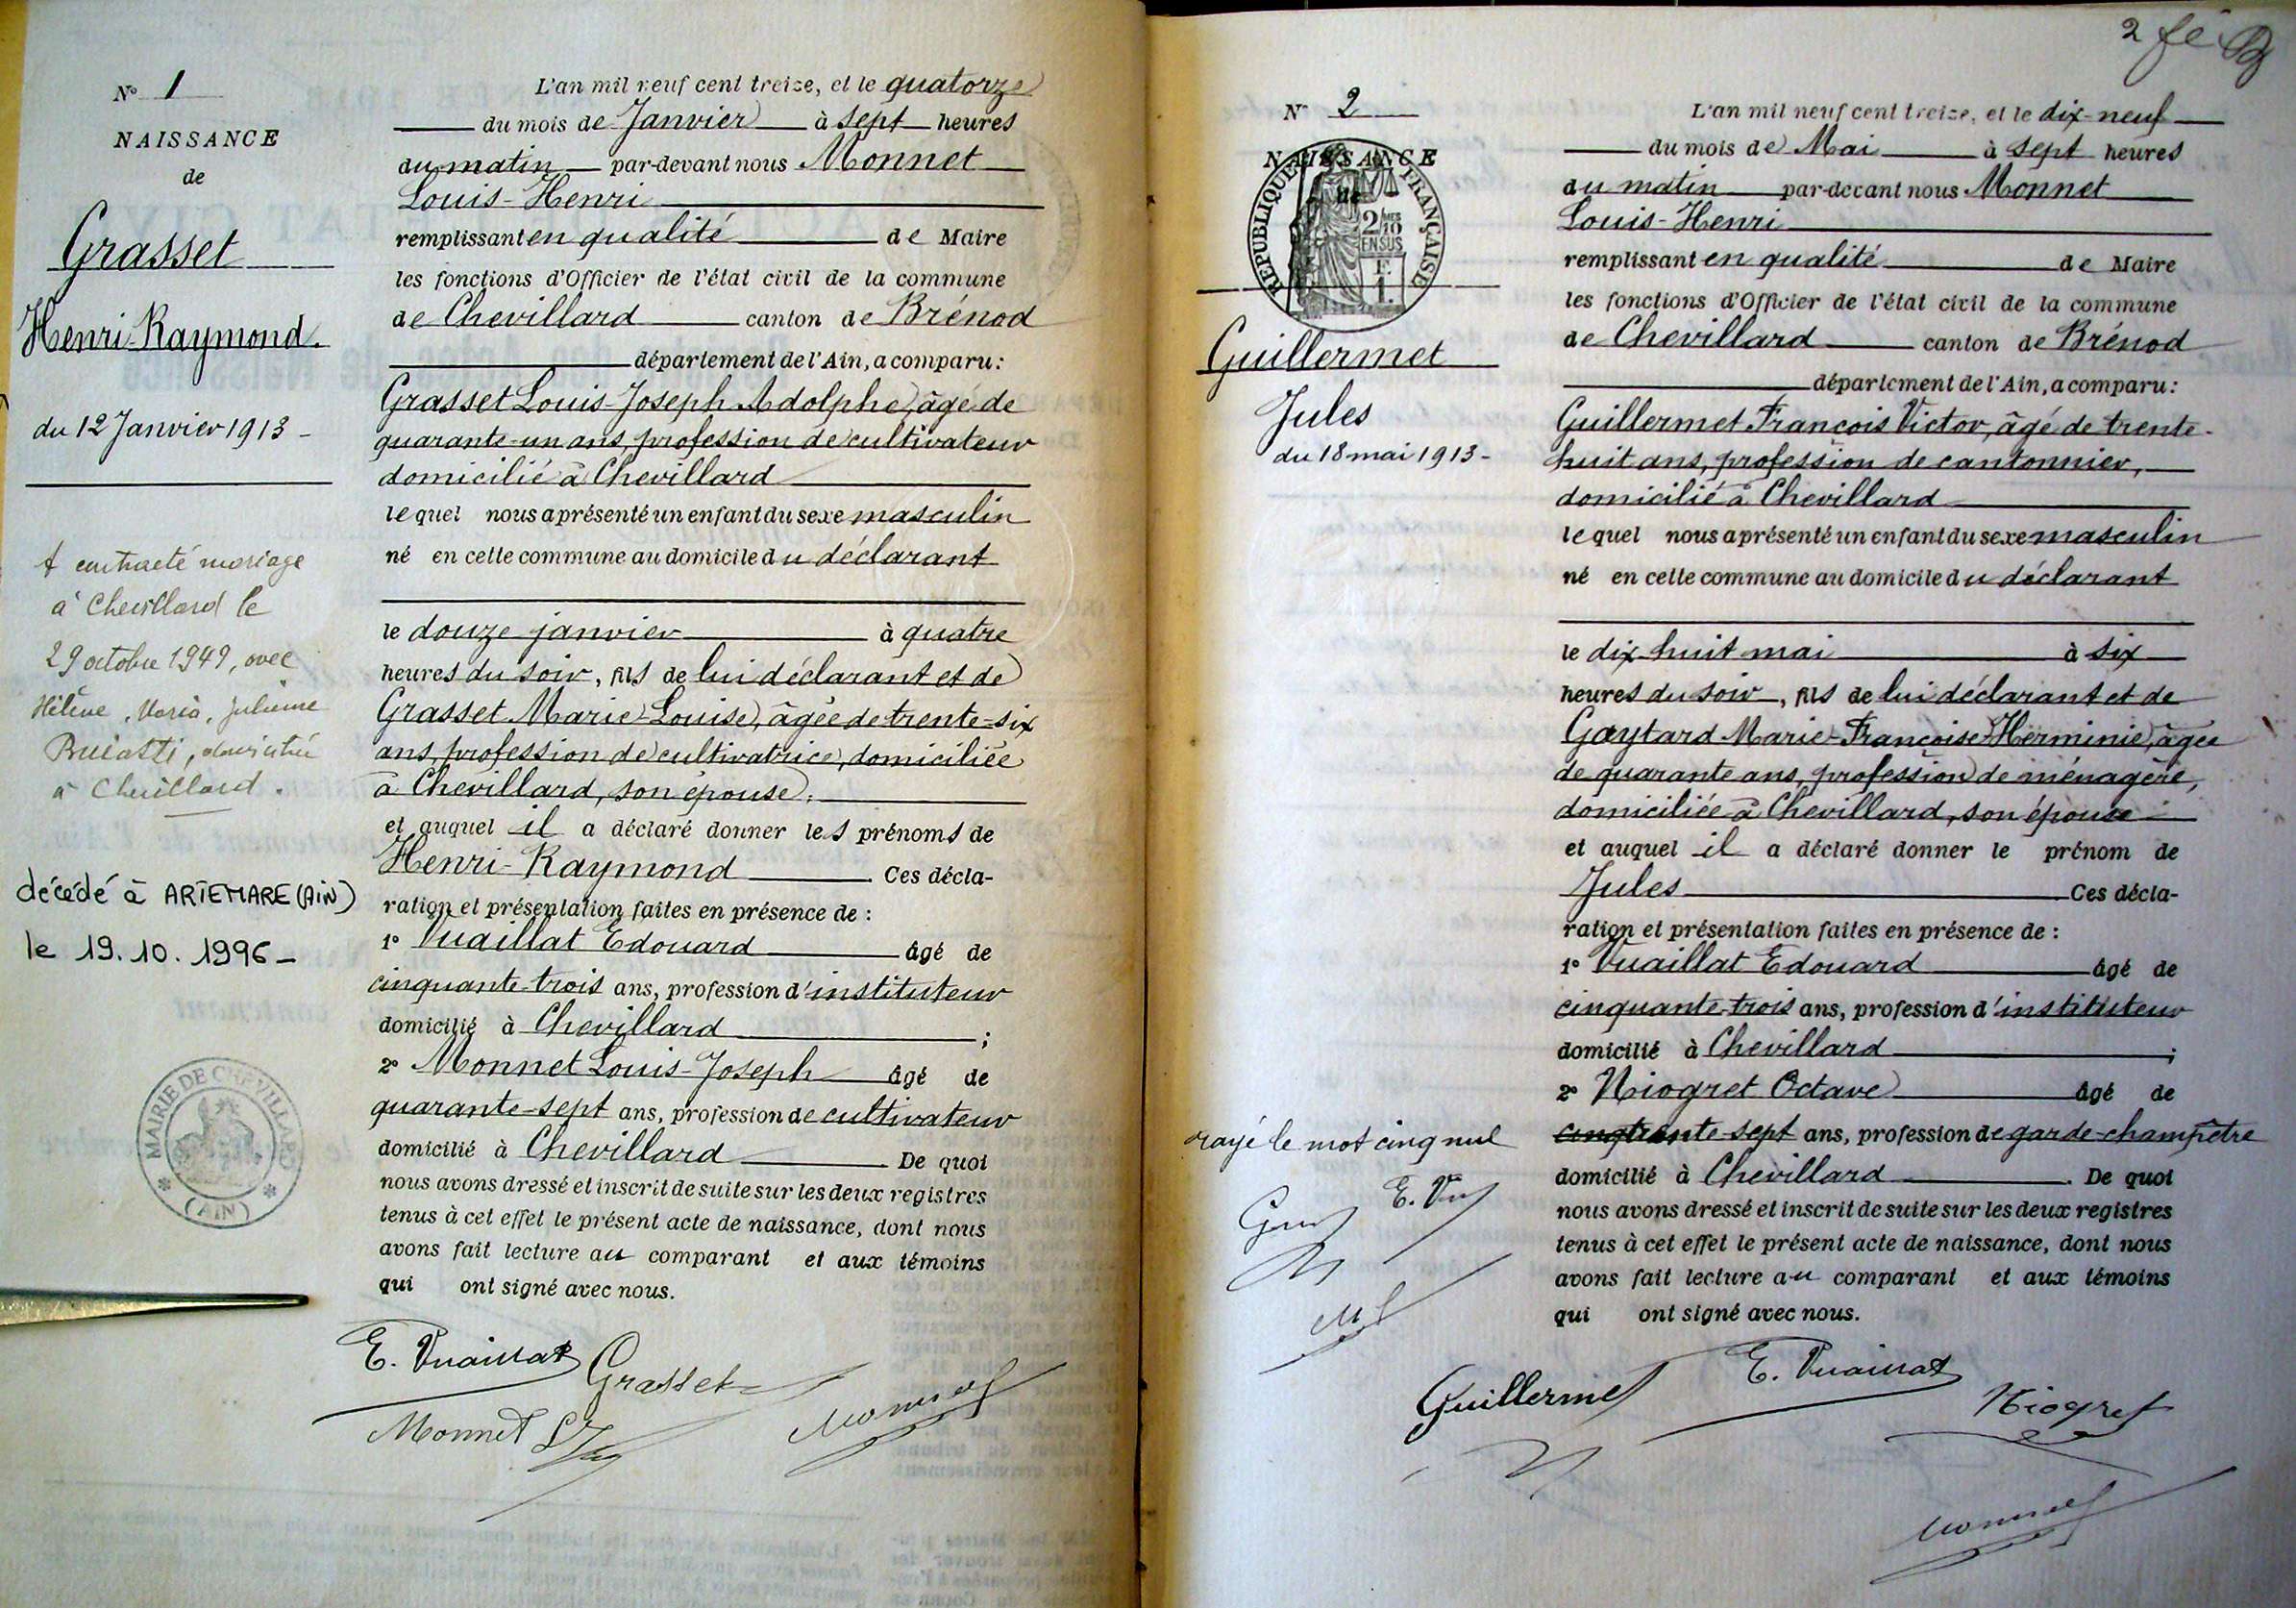 N° 1
NAISSANCE
de
Grasset
Henri-Raymond.
du 12 Janvier 1913 -
A contracté mariage
à Chevillard le
29 octobre 1949, avec
Hélène, Maria, Julienne
domiciliée
à Chevillard.
décédé à ARTEMARE (AIN)
le 19.10.1996 -
MAIRIE DE CHEVILLARD
(AIN)
L'an mil neuf cent treize, et le quatorze
du mois de Janvier à sept heures
du matin par-devant nous Monnet
Louis-Henri
remplissant en qualité de Maire
les fonctions d'Officier de l'état civil de la commune
de Chevillard canton de Brénod
département de l'Ain, a comparu :
Grasset Louis-Joseph Adolphe, âgé de
quarante-un ans, profession de cultivateur
domicilié à Chevillard
lequel nous a présenté un enfant du sexe masculin
né en cette commune au domicile du déclarant
le douze janvier à quatre
heures du soir, fils de lui déclarant et de
Grasset Marie-Louise, âgée de trente-six
ans, profession de cultivatrice, domiciliée
à Chevillard, son épouse,
et auquel il a déclaré donner les prénoms de
Henri-Raymond Ces décla-
ration et présentation faites en présence de :
1° Vuaillat Edouard âgé de
cinquante-trois ans, profession d'instituteur
domicilié à Chevillard ;
2° Monnet Louis-Joseph âgé de
quarante-sept ans, profession de cultivateur
domicilié à Chevillard. De quoi
nous avons dressé et inscrit de suite sur les deux registres
tenus à cet effet le présent acte de naissance, dont nous
avons fait lecture au comparant et aux témoins
qui ont signé avec nous.
E. Vuaillat Grasset
Monnet L J Monnet
2 fé
N° 2
NAISSANCE
de
REPUBLIQUE FRANÇAISE
2/10
EN SUS
Guillermet
Jules
du 18 mai 1913 -
rayé le mot cinq nul
E. Vu
L'an mil neuf cent treize, et le dix-neuf
du mois de Mai à sept heures
du matin par-devant nous Monnet
Louis-Henri
remplissant en qualité de Maire
les fonctions d'Officier de l'état civil de la commune
de Chevillard canton de Brénod
département de l'Ain, a comparu :
Guillermet François Victor, âgé de trente-
huit ans, profession de cantonnier,
domicilié à Chevillard
lequel nous a présenté un enfant du sexe masculin
né en cette commune au domicile du déclarant
le dix-huit mai à six
heures du soir, fils de lui déclarant et de
Marie-Françoise-Herminie, âgée
de quarante ans, profession de ménagère,
domiciliée à Chevillard, son épouse
et auquel il a déclaré donner le prénom de
Jules Ces décla-
ration et présentation faites en présence de :
1° Vuaillat Edouard âgé de
cinquante-trois ans, profession d'instituteur
domicilié à Chevillard ;
2° Niogret Octave âgé de
trente-sept ans, profession de garde-champêtre
domicilié à Chevillard. De quoi
nous avons dressé et inscrit de suite sur les deux registres
tenus à cet effet le présent acte de naissance, dont nous
avons fait lecture au comparant et aux témoins
qui ont signé avec nous.
Guillermet E. Vuaillat
Niogret
Monnet